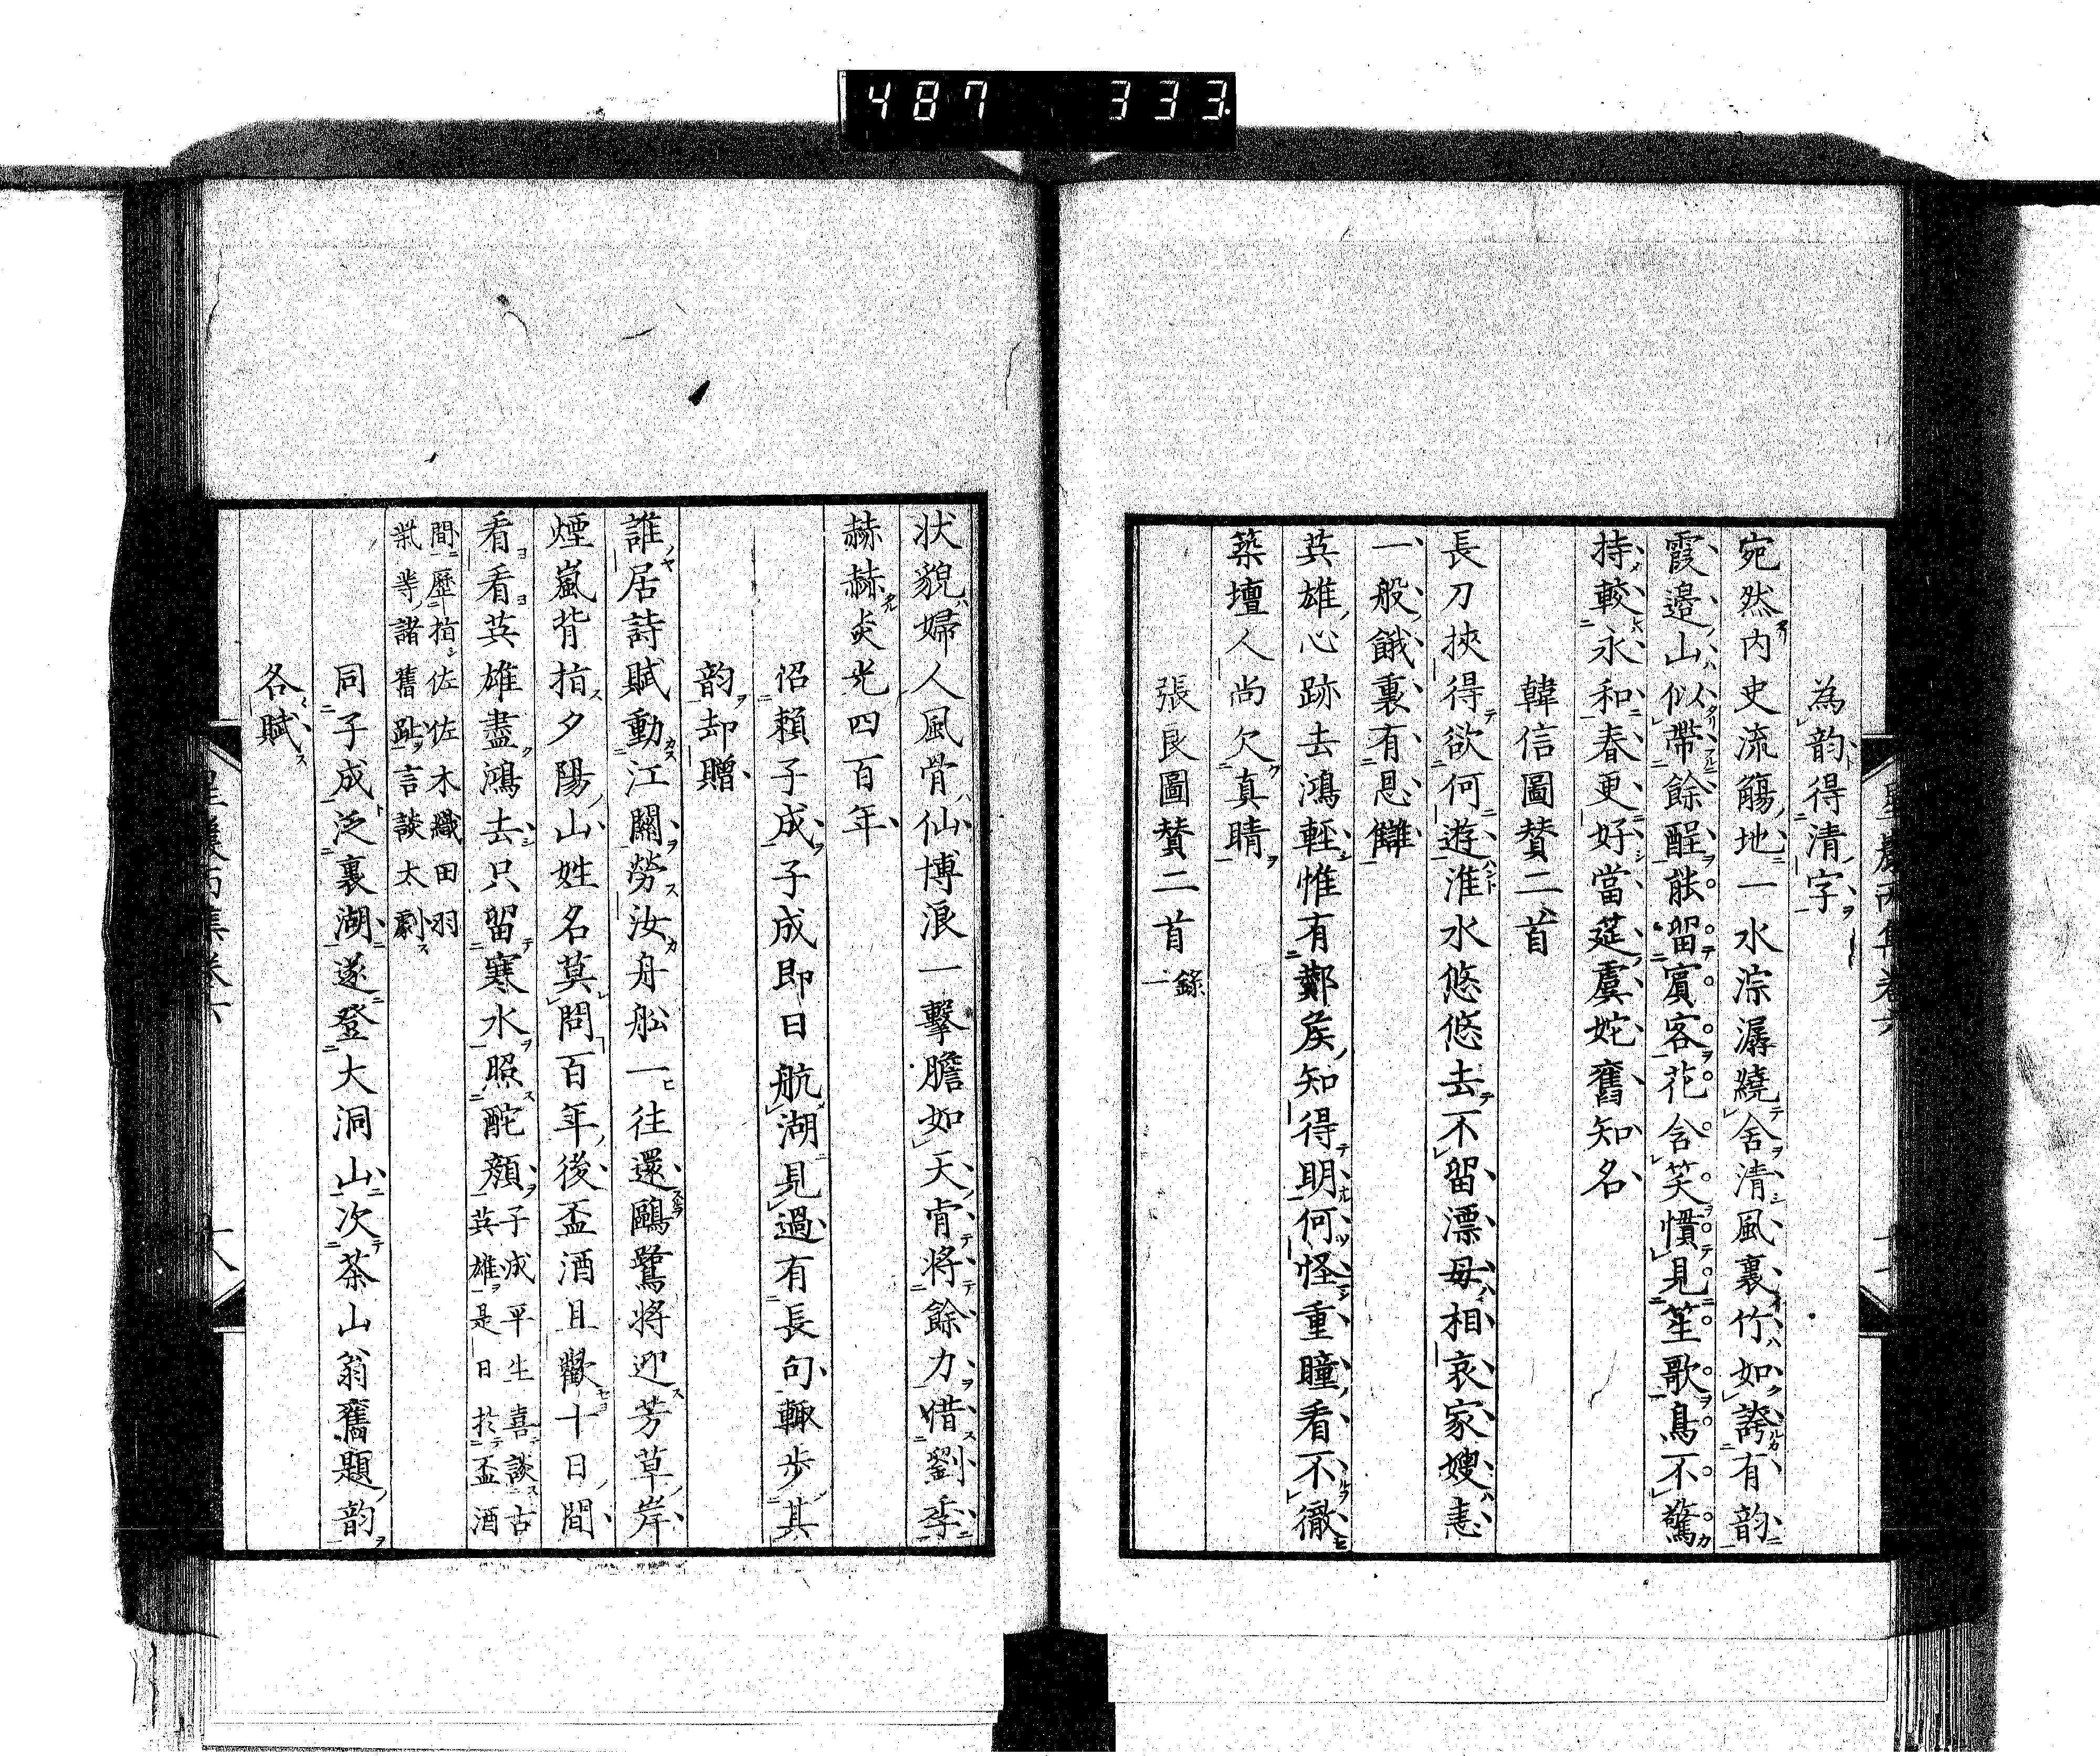 487 333
為韵得清字
宛然内史流觴地一水淙潺繞舍清風裏竹如誇有韵
霞邉山似帶餘酲能留賓客花含笑慣見笙歌鳥不驚
持較永和春更好當筵虞姹舊知名
韓信圖賛二首
長刀挾得欲何遊淮水悠悠去不留漂母相哀家嫂恚
一般餓裏有恩讎
英雄心跡去鴻輕惟有酇矦知得明何怪重瞳看不徹
築壇人尚欠真晴
張良圖賛二首錄一
状貌婦人風骨仙博浪一擊膽如天肯將餘力借劉季
赫赫炎光四百年
佋頼子成子成即日航湖見過有長句輙步其
韵却贈
誰居詩賦動江關勞汝舟舩一往還鷗鷺將迎芳草岸
煙嵐背指夕陽山姓名莫問百年後盃酒且歡十日間
看看英雄盡鴻去只留寒水照酡顔子成平生喜談古
英雄是日於盃酒
間歴指佐佐木織田羽
柴等諸舊趾言談太劇
同子成泛裏湖遂登大洞山次茶山翁舊題韵
各賦